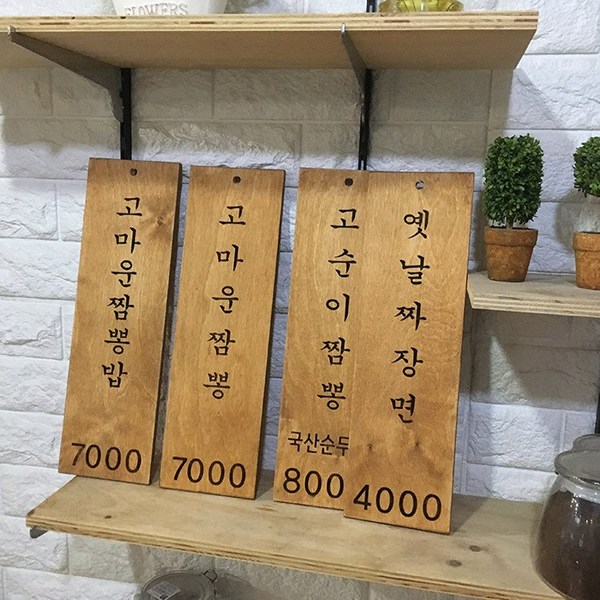 FLOWERS
고마운짬뽕밥
7000
고마운짬뽕
7000
고순이짬뽕
국산순두
800
옛날짜장면
4000